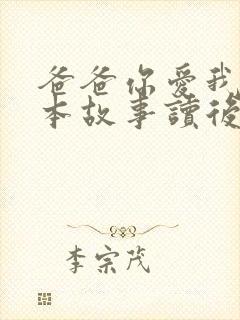 爸爸你愛我
本故事讀後
李宗茂